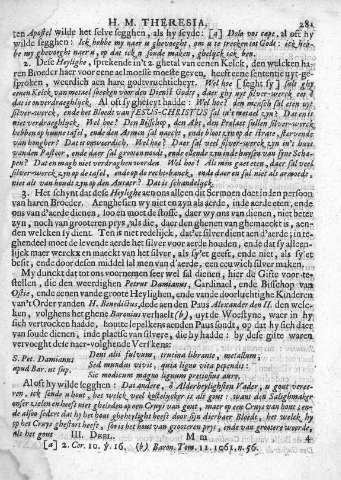 H. M. THERESIA. 281
ten Apostel wilde het selve segghen, als hy seyde: [a] Dolo vos cepi, al oft hy
wilde segghen: Ick hebbe my naer u ghevoeght, om u te trecken tot Godt: ick heb-
be my ghevoeght naer u, op dat ick u sonde maken, ghelijck ick ben.
2. Dese Heylighe, sprekende in't 2 ghetal van eenen Kelck, den welcken ha-
ren Broeder haer voor eene aelmoesse moeste geven, heeft eene sententie uyt-ge-
sproken, weerdich aen hare godtvruchticheyt. Wel hoe [seght sy] sult ghy
eenen Kelck van metael
dat is onverdraeghelijck. Al oft sy gheseyt hadde: Wel hoe? den mensch sal eten uyt
silver-werck, ende het Bloedt van JESUS-CHRISTUS sal in't metael zijn? Dat en is
niet verdraeghelijck. Wel hoe? Den Bisschop, den Abt, den Prelaet sullen silver-werck
hebben op hunne tafel, ende den Armen sal naeckt, ende bloot zijn op de straet, stervende
van hongher? Dat is onweerdich. Wel hoe? Daer sal veel silver-werck zijn in't huys
vanden Pastoor, ende daer sal groote noodt, ende ellende zijn in de huysen van sijne Schae-
pen? Dat en magh niet verdraghen worden. Wel hoe? Als men gaet eten, daer sal veel
silver-werck zijn op de tafel, ende op de rechtbancke, ende daer en sal niet als armoede,
niet als van houdt zijn op den Autaer? Dat is schandelijck.
3. Het schynt dat dese Heylighe aen ons alleen dit Sermoen doet in den persoon
van haren Broeder. Aenghesien wy niet en zyn als aerde, inde aerde eten, ende
ons van d'aerde dienen, soo en moet de stoffe, daer wy ons van dienen, niet beter
zyn, noch van grooteren prys, als die, daer den ghenen van ghemaeckt is, aen-
den welcken sy dient. T'en is niet redelijck, dat d'silver dient aen d'aerde, in te-
ghendeel moet de levende aerde het silver voor aerde houden, ende dat sy alleen-
lijck maer werck en maeckt van het silver, als sy 't geeft, ende niet, als sy 't
besit, ende door desen middel sal men van d'aerde, een eeuwich silver maken.
My dunckt dat tot ons voornemen seer wel sal dienen, hier de Gifte voor te-
stellen, die den weerdighen Petrus Damianus, Cardinael, ende Bisschop van
Ostie, ende eenen vande groote Heylighen, ende vande doorluchtighe Kinderen
van't Order vanden H. Benedictus, dede aen den Paus Alexander den II. den wel-
cken, volghens het ghene Baronius verhaelt (b), uyt de Woestyne, waer in hy
sich vertrocken hadde, houte lepelkens aen den Paus sondt, op dat hy sich daer
van soude dienen, inde plaetse van silvere, die hy hadde: hy dese gifte waren
vervoeght dese naer-volghende Versen:
S. Pet. Damianus Dent alii fulvum, trutina librante, metallum;
apud Bar. ut sup. Sed mundus vivat, quia ligno vita pependit:
Sic modicum magno lignum pretiosius auro.
Al oft hy wilde segghen: Dat andere, ô Alderheylighsten Vader, u gout veree-
ren, ick sende u hout, het welck veel kostelijcker is als gout: want den Salighmaker
onser zielen en heeft niet ghehanghen op een Cruys van gout, maer op een Cruys van hout: en-
de alsoo seder dat hy het hout gheheylight heeft door sijn dierbaer Bloedt, het welck, hy
op het Cruys ghestort heeft, soo is het hout van grooteren prijs, ende van grootere weerde,
als het gout III. DEEL. M m 4
[a] 2. Cor. 10. ℣. 16. (b) Baron. Tom. 11. 1061. n. 56.